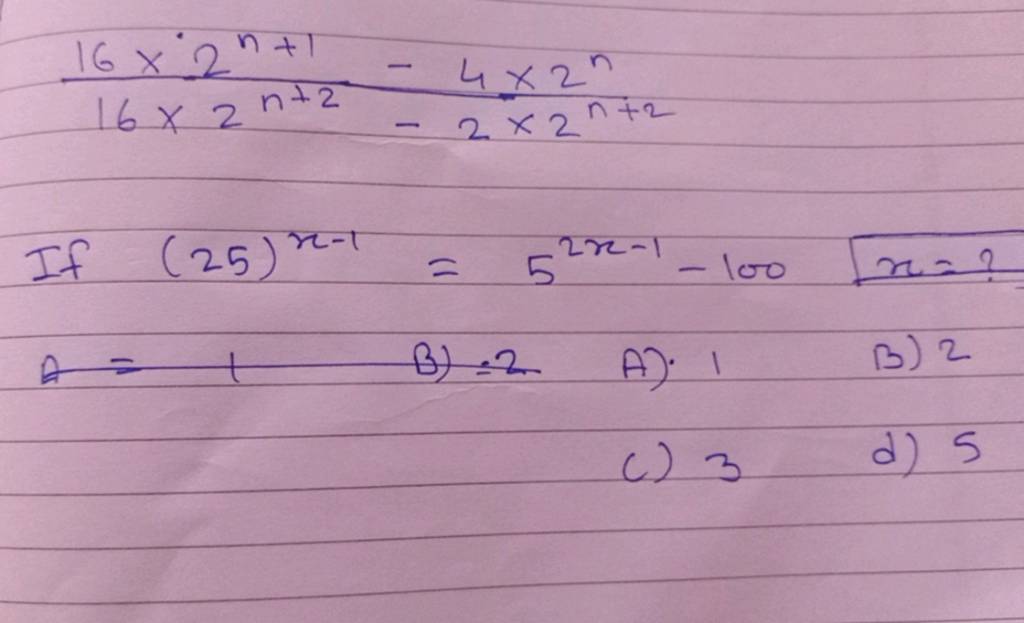 16 × 2^{n+1} - 4 × 2^{n}
16 × 2^{n+2} - 2 × 2^{n+2}
If (25)^{x-1} = 5^{2x-1} - 100 x = ?
A = 1 B) = 2 A) 1 B) 2
C) 3 d) 5